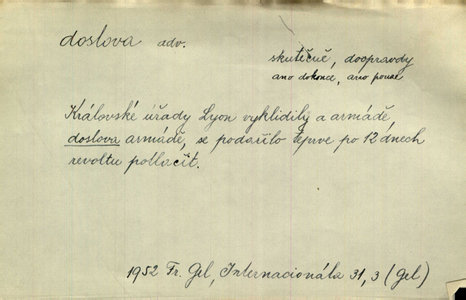 doslova adv.
skutečně, doopravdy
ano dokonce, ano pouze
Královské úřady Lyon vyklidily a armádě,
doslova armádě, se podařilo teprve po 12 dnech
revoltu potlačit.
1952 Fr. Gel, Internacionála 31, 3 (Gel)